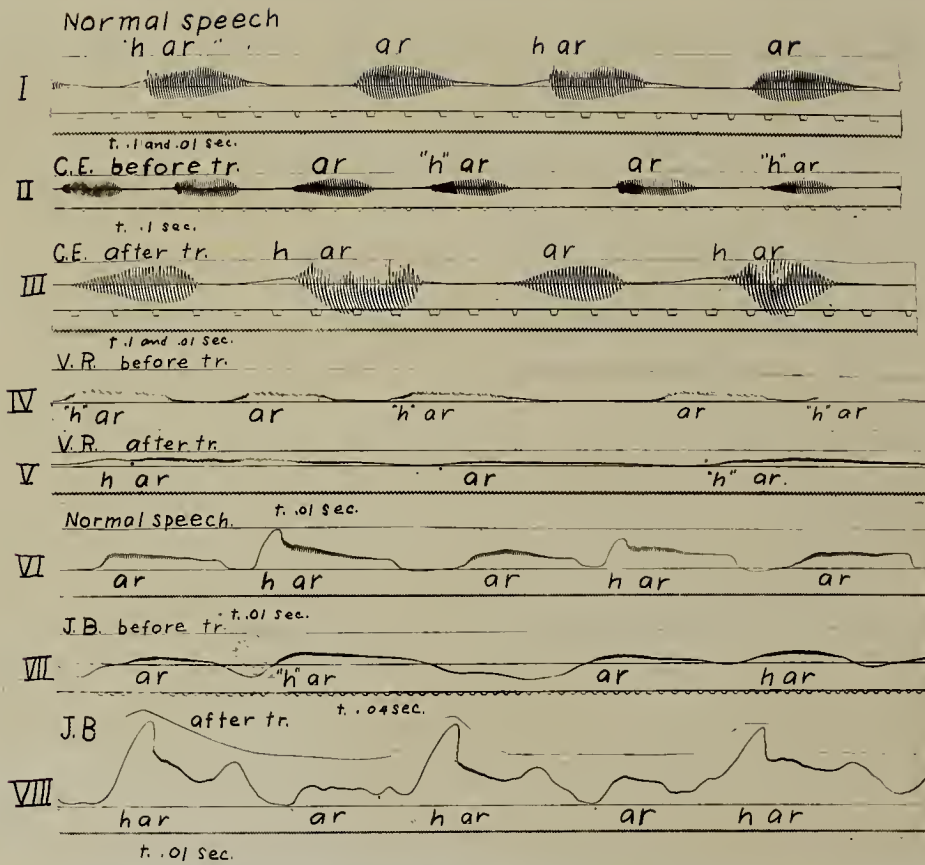 Normal speech
"h ar" ar h ar ar
I
t. .1 and .01 sec.
C.E. before tr. ar "h" ar ar "h" ar
II
t. .1 sec.
C.E. after tr. h ar ar h ar
III
t .1 and .01 sec.
V.R. before tr.
IV
"h" ar ar "h" ar ar "h" ar
V.R. after tr.
V
h ar ar "h" ar.
Normal speech. t. .01 sec.
VI
ar h ar ar h ar ar
J.B. before tr. t. .01 sec.
VII
ar "h" ar ar h ar
t. .04 sec.
J.B after tr.
VIII
h ar ar h ar ar h ar
t. .01 sec.